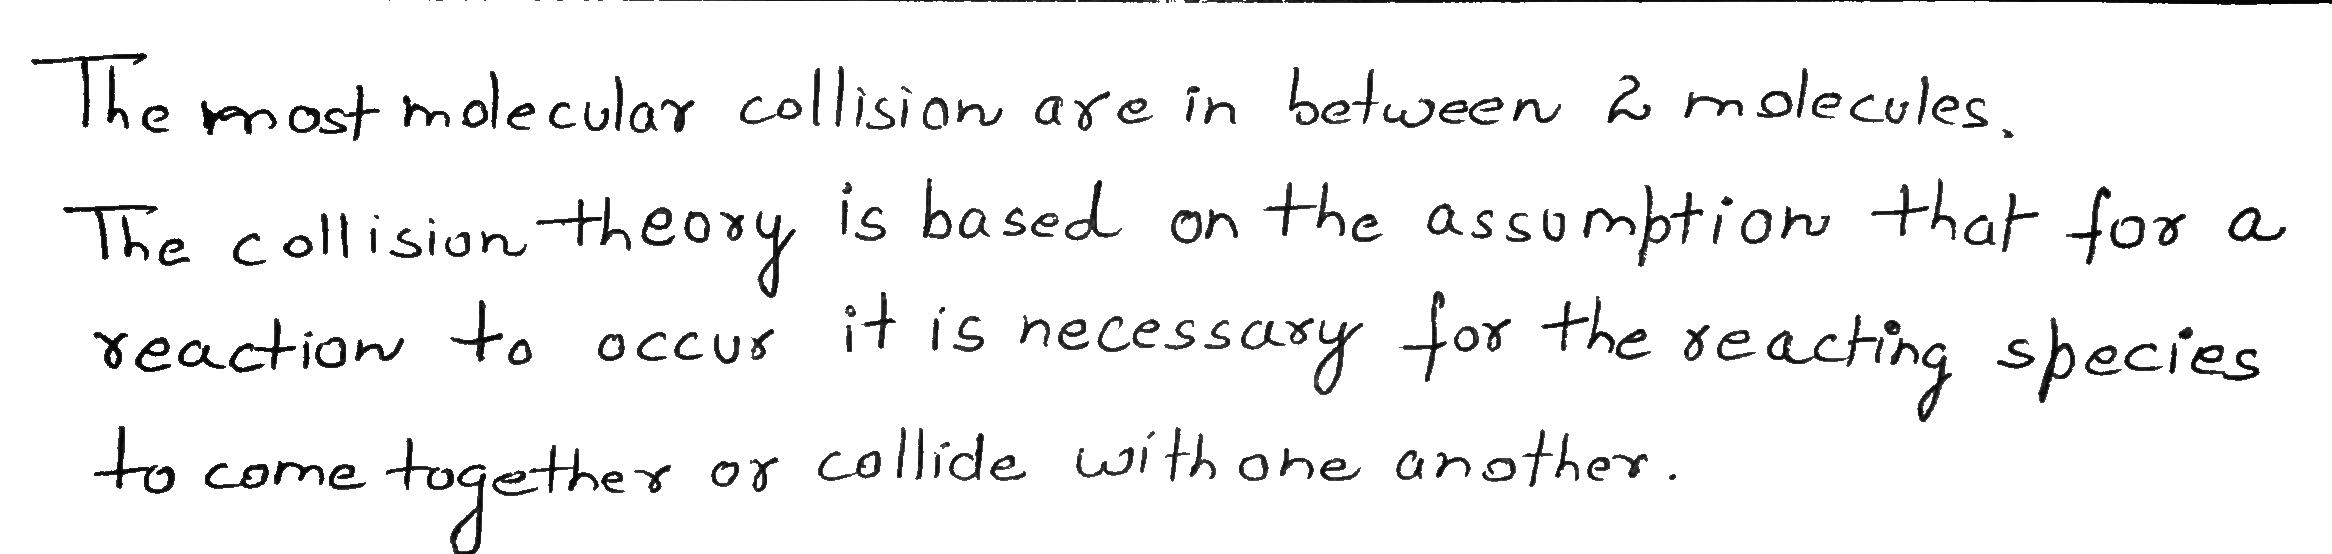 The most molecular collision are in between 2 molecules.
The collision theory is based on the assumption that for a
reaction to occur it is necessary for the reacting species
to come together or collide with one another.